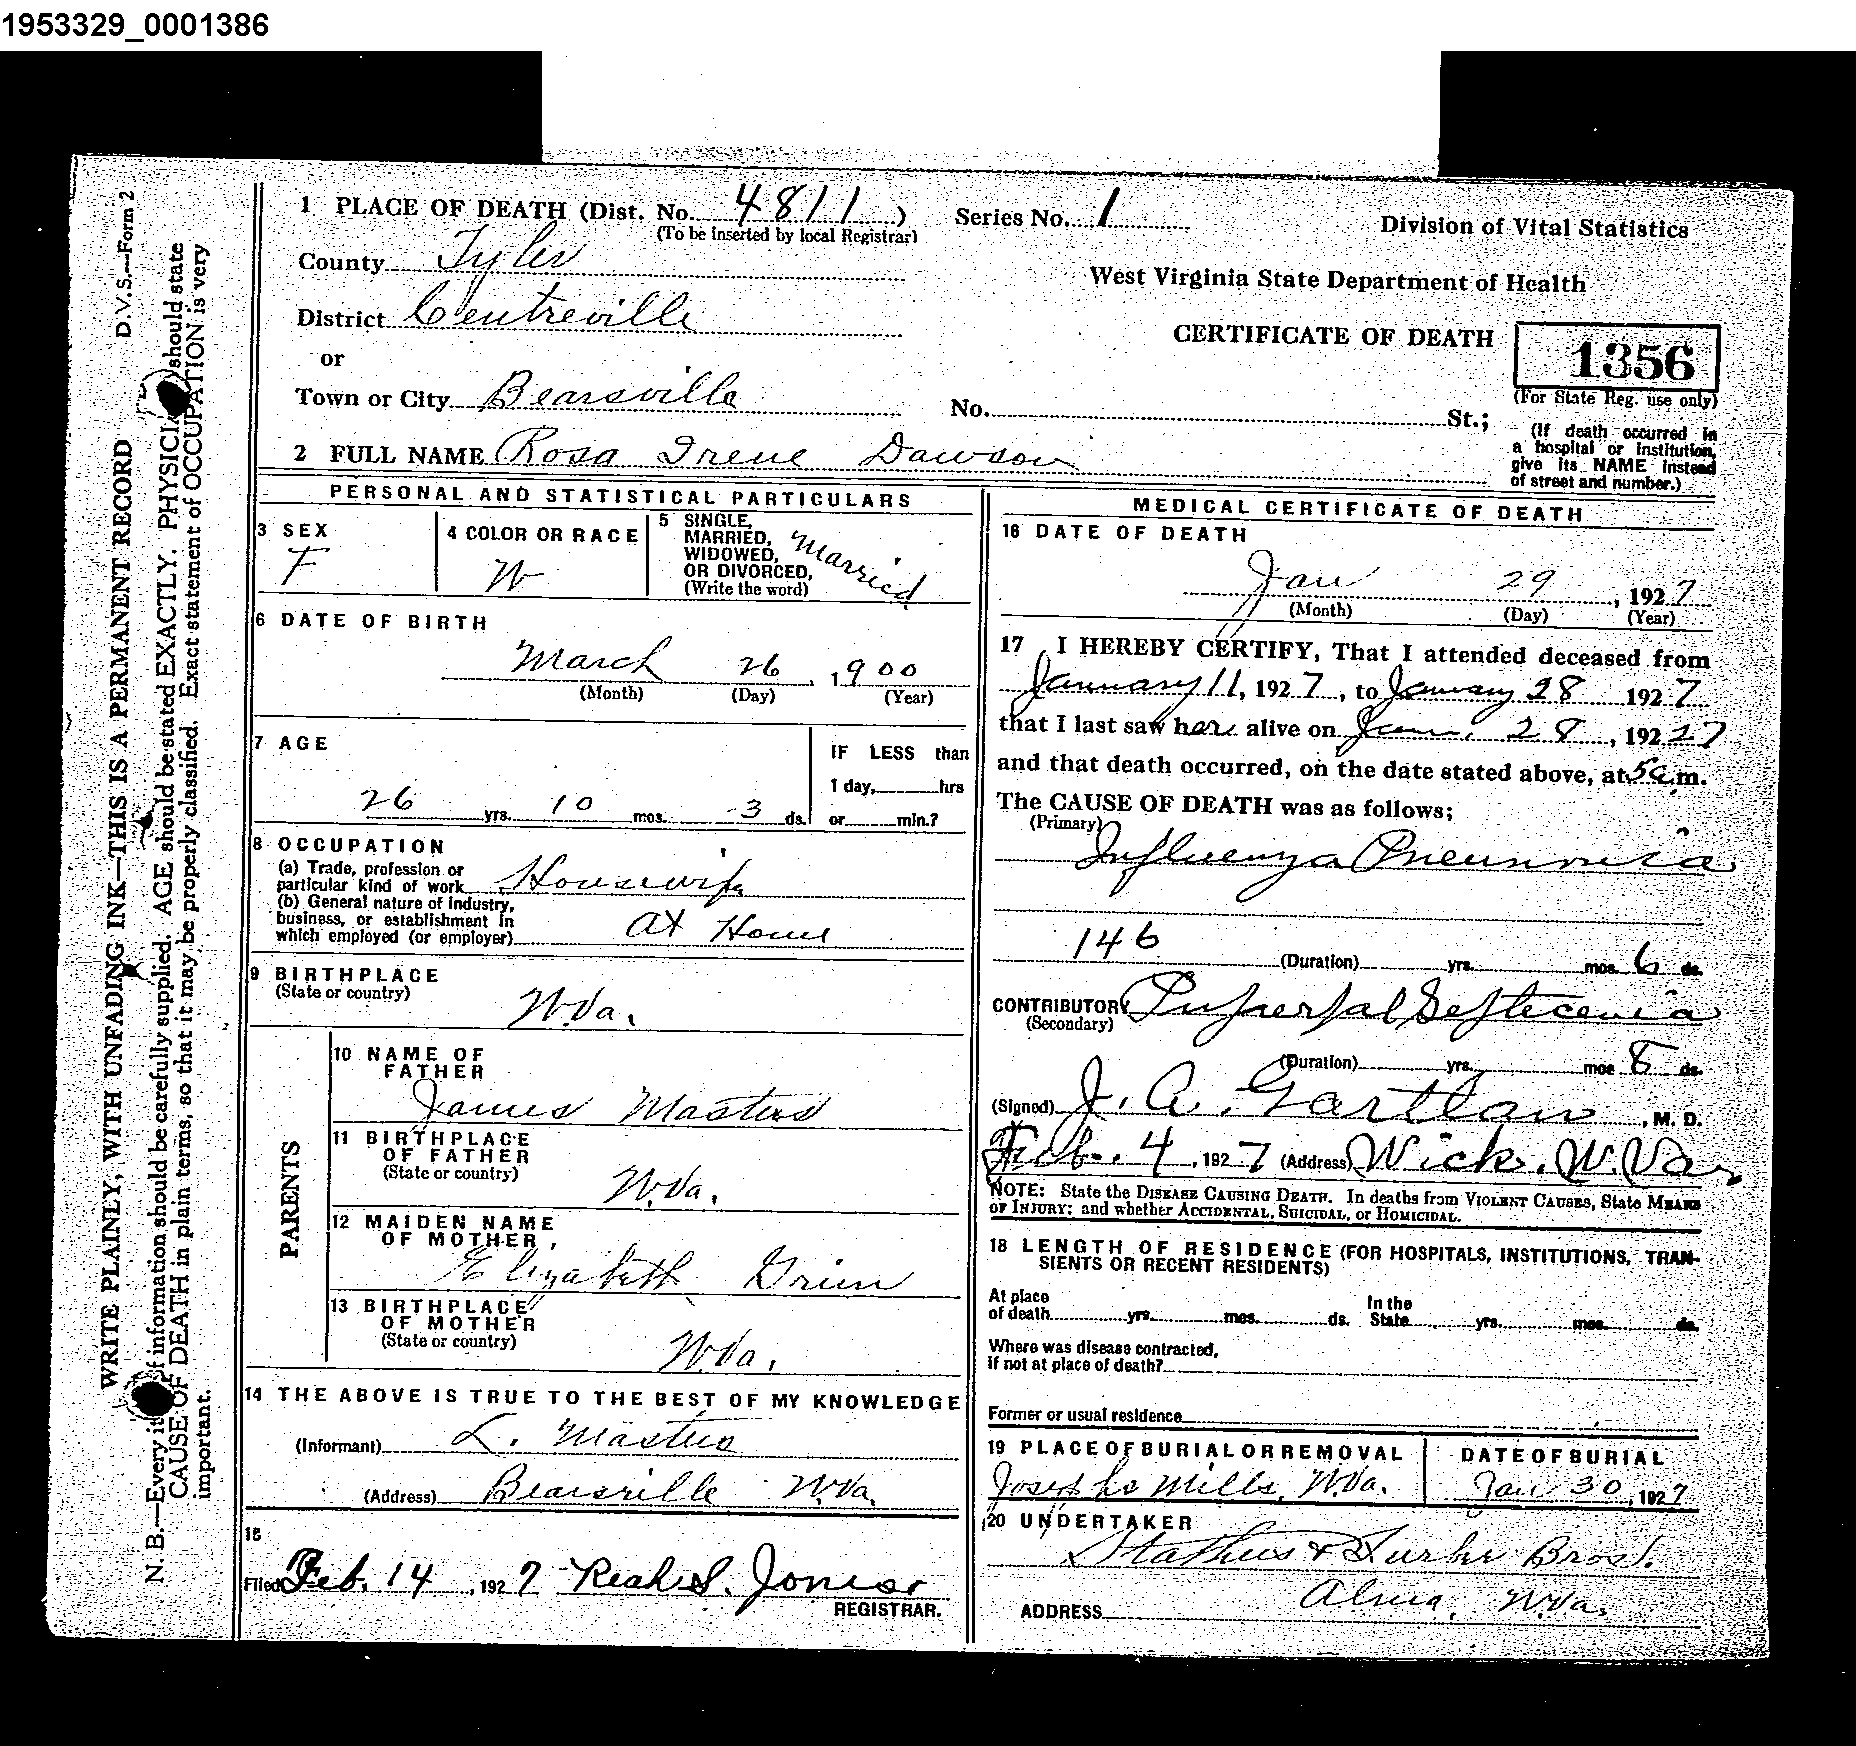 1953329_0001386
D.V.S.—Form 2
WRITE PLAINLY, WITH UNFADING INK—THIS IS A PERMANENT RECORD
N. B.—Every it of information should be carefully supplied. AGE should be stated EXACTLY. PHYSICIA should state
CAUSE OF DEATH in plain terms, so that it may be properly classified. Exact statement of OCCUPATION is very
important.
1 PLACE OF DEATH (Dist. No. 4811)
(To be inserted by local Registrar)
Series No. 1
Division of Vital Statistics
County Tyler
West Virginia State Department of Health
District Centreville
CERTIFICATE OF DEATH
1356
(For State Reg. use only)
or
Town or City Bearsville
No. St.;
(If death occurred in
a hospital or institution,
give its NAME instead
of street and number.)
2 FULL NAME Rosa Irene Dawson
PERSONAL AND STATISTICAL PARTICULARS
3 SEX
F
4 COLOR OR RACE
W
5 SINGLE,
MARRIED,
WIDOWED,
OR DIVORCED,
(Write the word)
Married
6 DATE OF BIRTH
March 26, 1900
(Month) (Day) (Year)
7 AGE
26 yrs. 10 mos. 3 ds.
IF LESS than
1 day, hrs
or min.?
8 OCCUPATION
(a) Trade, profession or
particular kind of work Housewife
(b) General nature of industry,
business, or establishment in
which employed (or employer) At Home
9 BIRTHPLACE
(State or country)
W.Va.
PARENTS
10 NAME OF
FATHER
James Masters
11 BIRTHPLACE
OF FATHER
(State or country)
W.Va.
12 MAIDEN NAME
OF MOTHER,
Elizabeth
13 BIRTHPLACE
OF MOTHER
(State or country)
W.Va.
14 THE ABOVE IS TRUE TO THE BEST OF MY KNOWLEDGE
(Informant) L. Masters
(Address) Bearsville W.Va.
15
Filed Feb. 14, 1927 S. Jones
REGISTRAR.
MEDICAL CERTIFICATE OF DEATH
16 DATE OF DEATH
Jan 29, 1927
(Month) (Day) (Year)
17 I HEREBY CERTIFY, That I attended deceased from
January 11, 1927, to January 28 1927
that I last saw her alive on Jan. 28, 19227
and that death occurred, on the date stated above, at 5a.m.
The CAUSE OF DEATH was as follows;
(Primary)
Influenza Pneumonia
146
(Duration) yrs. mos. 6 ds.
CONTRIBUTORY Puperpal Septicemia
(Secondary)
(Duration) yrs. mos 8 ds.
(Signed) J. A. Gartlan, M. D.
Feb. 4, 1927 (Address) Wick, W. Va.
NOTE: State the DISEASE CAUSING DEATH. In deaths from VIOLENT CAUSES, State MEANS
OF INJURY; and whether ACCIDENTAL, SUICIDAL, or HOMICIDAL.
18 LENGTH OF RESIDENCE (FOR HOSPITALS, INSTITUTIONS, TRAN-
SIENTS OR RECENT RESIDENTS)
At place
of death yrs. mos. ds.
In the
State yrs. mos. ds.
Where was disease contracted,
if not at place of death?
Former or usual residence
19 PLACE OF BURIAL OR REMOVAL
Josephs Mills, W.Va.
DATE OF BURIAL
Jan 30, 1927
20 UNDERTAKER
& Bros.
ADDRESS Alma, W.Va.